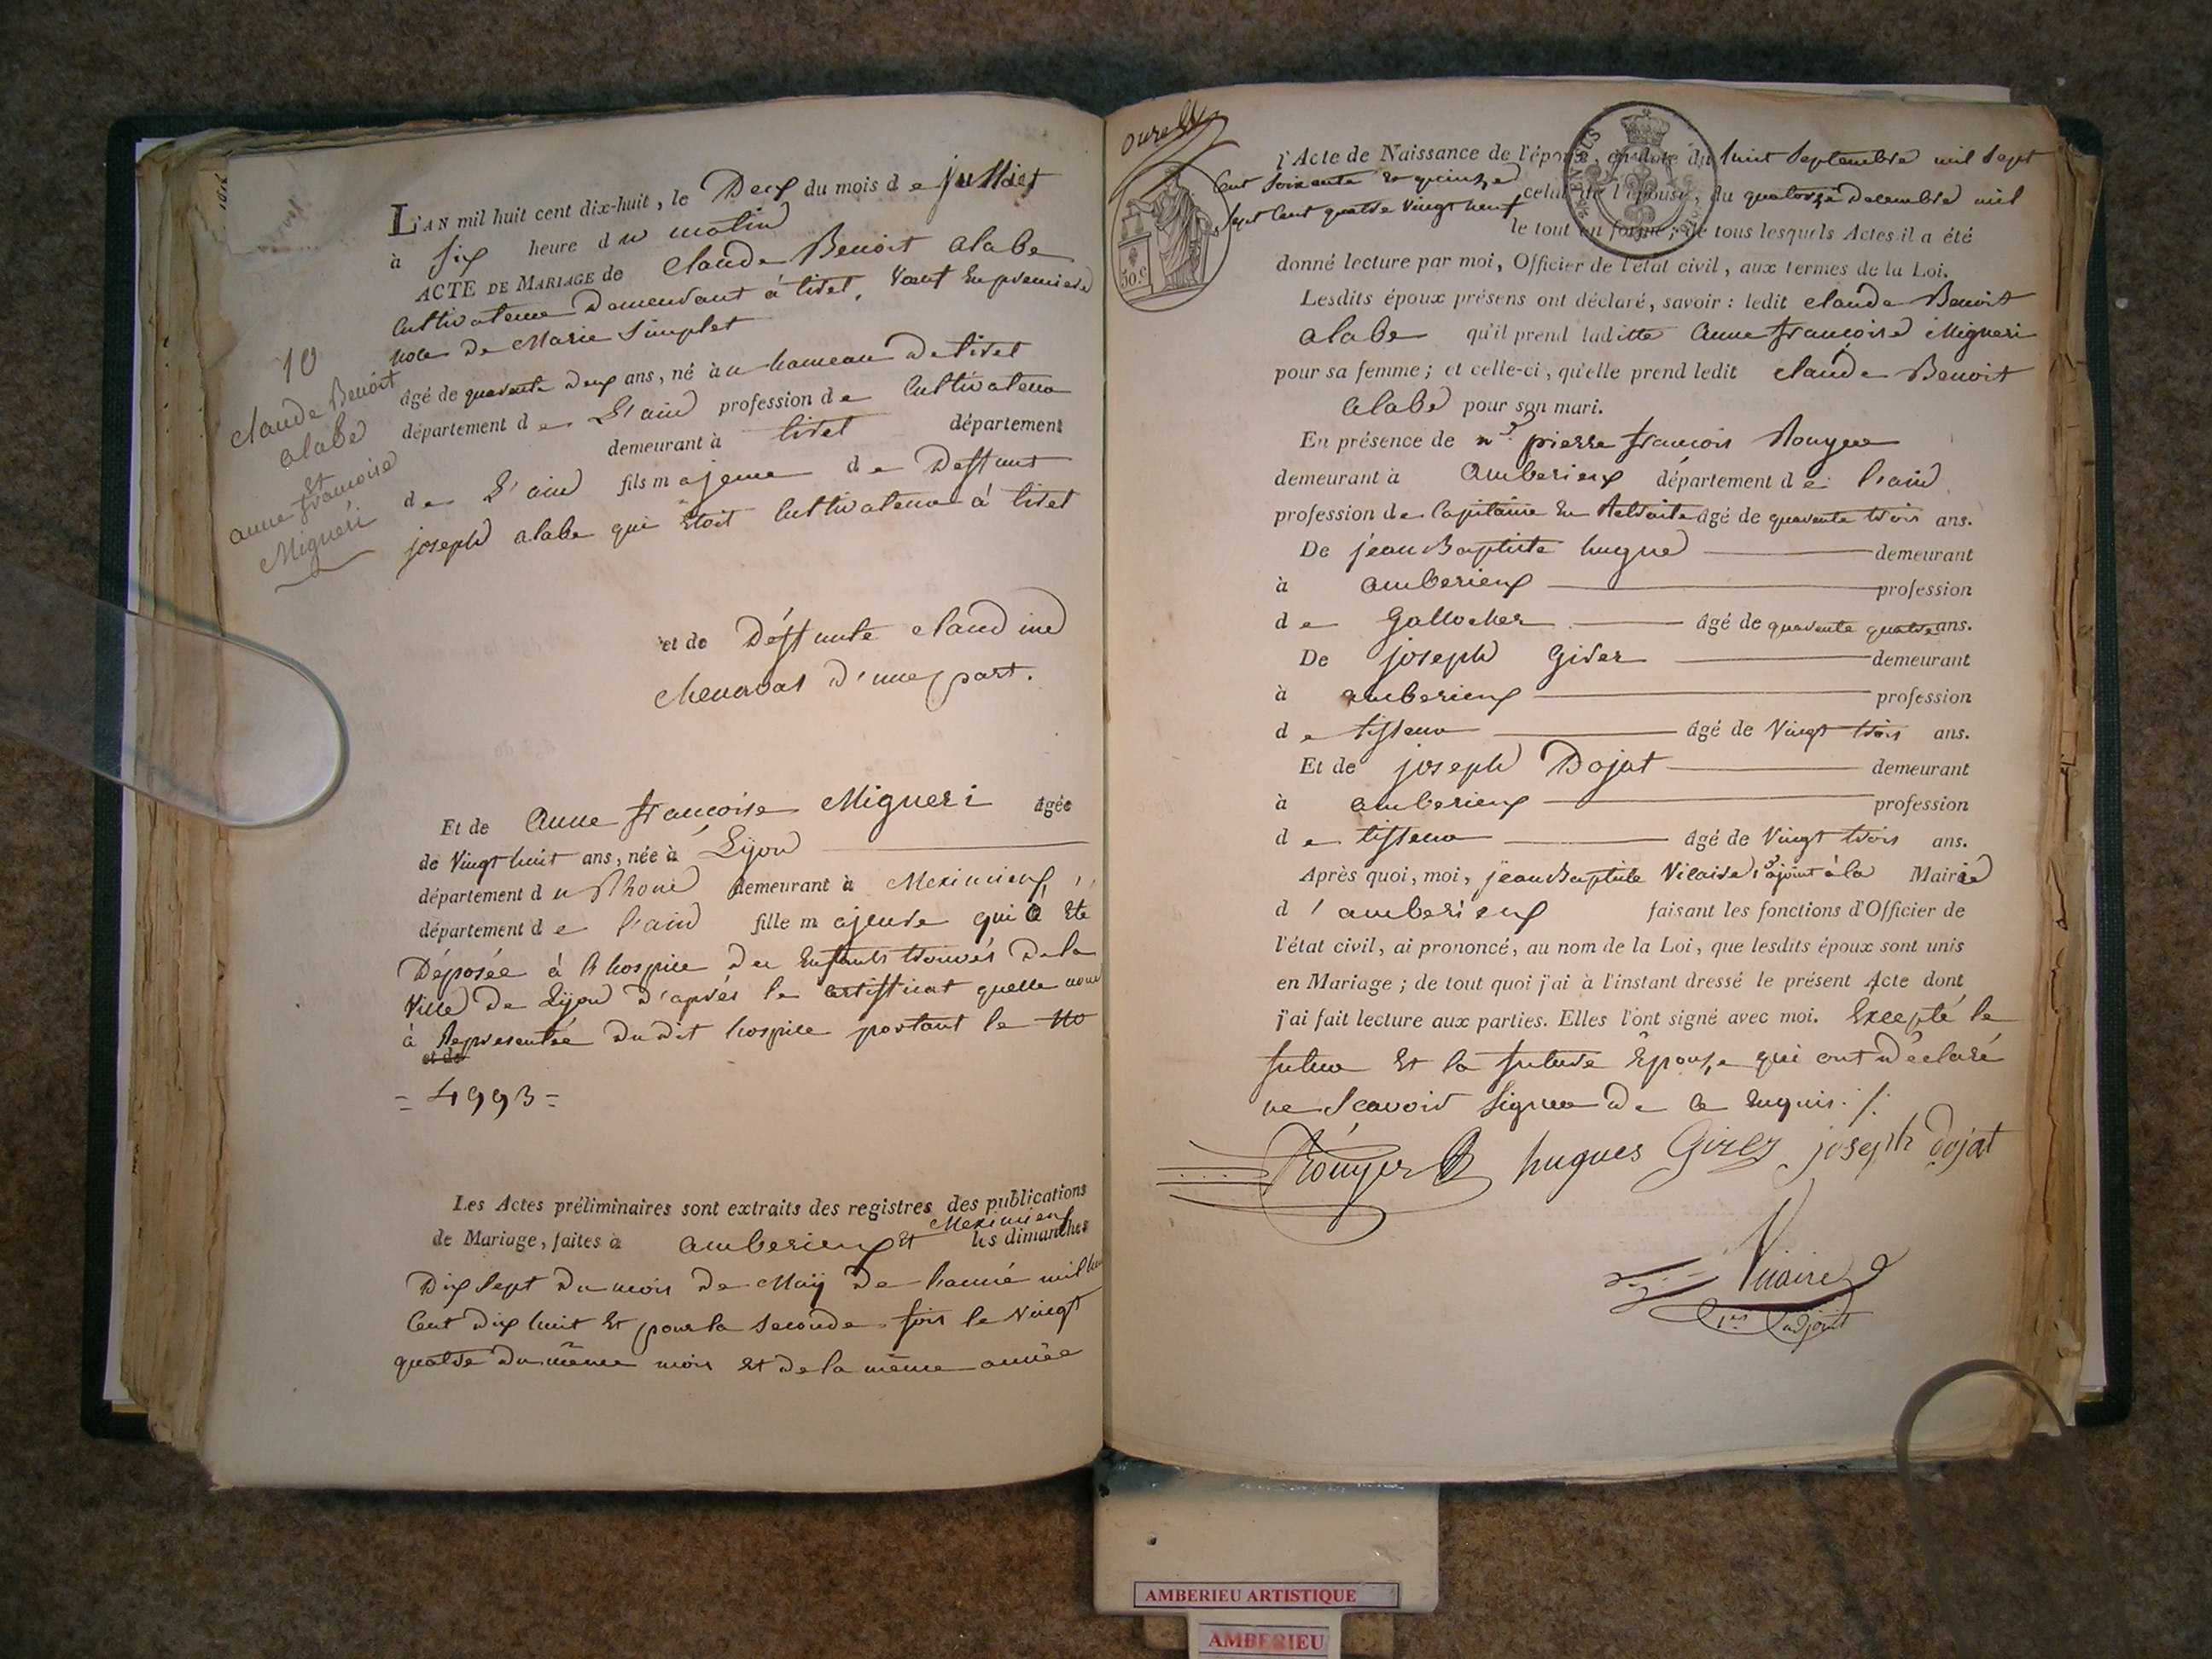 L'AN mil huit cent dix-huit, le Deux du mois de juillet
à six heure du matin
ACTE DE MARIAGE de Claude Benoit alabe
Cultivateur Demeurant à tiret, Veuf En premiere
noce de Marie Simplet
âgé de quarente deux ans, né à u hameau De tiret
département de L'ain profession de Cultivateur
demeurant à tiret département
de L'ain fils majeur de Deffunt
joseph alabe qui Etoit Cultivateur à tiret
et de Déffunte Claudine
Chenavas d'une part.
10
Claude Benoit
alabe
Et
anne françoise
Migneri
Et de Anne françoise Migneri âgée
de Vingt huit ans, née à Lijon
département du Rhone demeurant à Meximieux
département de l'ain fille majeure qui à Eté
Déposée à l'hospice des Enfants trouvés De la
Ville De Lijon d'après le certifficat quelle nous
à Représentée Du dit hospice portant le No
et de
= 4993 =
Les Actes préliminaires sont extraits des registres des publications
Meximieux
de Mariage, faites à amberieux Et les dimanches
Dix sept Du mois De Maij De l'année mil huit
Cent Dix huit Et pour la seconde fois le Vingt
quatre Du même mois Et de la même année
l'Acte de Naissance de l'époux, en date du huit Septembre mil Sept
Cent Soixante Et quinze celui de l'épouse, du quatorze Decembre mil
Sept Cent quatre Vingt neuf
le tout en forme; de tous lesquels Actes il a été
50.c
donné lecture par moi, Officier de l'état civil, aux termes de la Loi.
Lesdits époux présens ont déclaré, savoir : ledit Claude Benoit
alabe qu'il prend laditte Anne françoise Migneri
pour sa femme; et celle-ci, qu'elle prend ledit Claude Benoit
alabe pour son mari.
En présence de Mr. pierre françois Rouyer
demeurant à Amberieux département de l'ain
profession de Capitaine En Retraite âgé de quarente trois ans.
De jean Baptiste hugue demeurant
à amberieux profession
de Gallocher âgé de quarente quatre ans.
De joseph Girer demeurant
à amberieux profession
de tisseur âgé de Vingt trois ans.
Et de joseph Dojat demeurant
à amberieux profession
de tisseur âgé de Vingt trois ans.
Après quoi, moi, jean Baptiste Vicaire 1er ajoint à la Mairie
d'amberieux faisant les fonctions d'Officier de
l'état civil, ai prononcé, au nom de la Loi, que lesdits époux sont unis
en Mariage; de tout quoi j'ai à l'instant dressé le présent Acte dont
j'ai fait lecture aux parties. Elles l'ont signé avec moi. Excepté le
futur Et la future Epouse qui ont Déclaré
ne Scavoir Signer De ce Enquis ./.
Rouyer hugues Girer joseph dojat
Vicaire
1er adjoint
AMBERIEU ARTISTIQUE
AMBERIEU